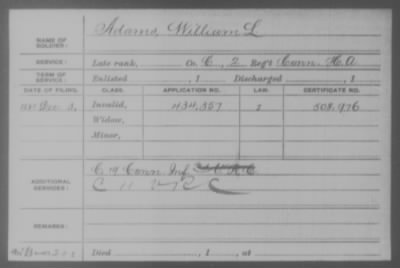 NAME OF SOLDIER: Adams, William L
SERVICE: Late rank, Co. C, 2 Reg't Conn. H.A
TERM OF SERVICE: Enlisted , 1 Discharged , 1
DATE OF FILING. CLASS. APPLICATION NO. LAW. CERTIFICATE NO.
Dec 3, Invalid, 434,357 508,976
Widow,
Minor,
ADDITIONAL SERVICES: C 19 Conn. Inf.
C 11 V R C
REMARKS:
Died , 1 , at